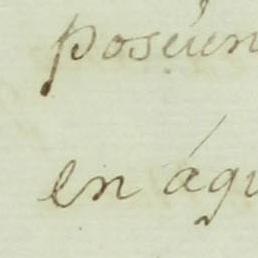 poseen
en águ